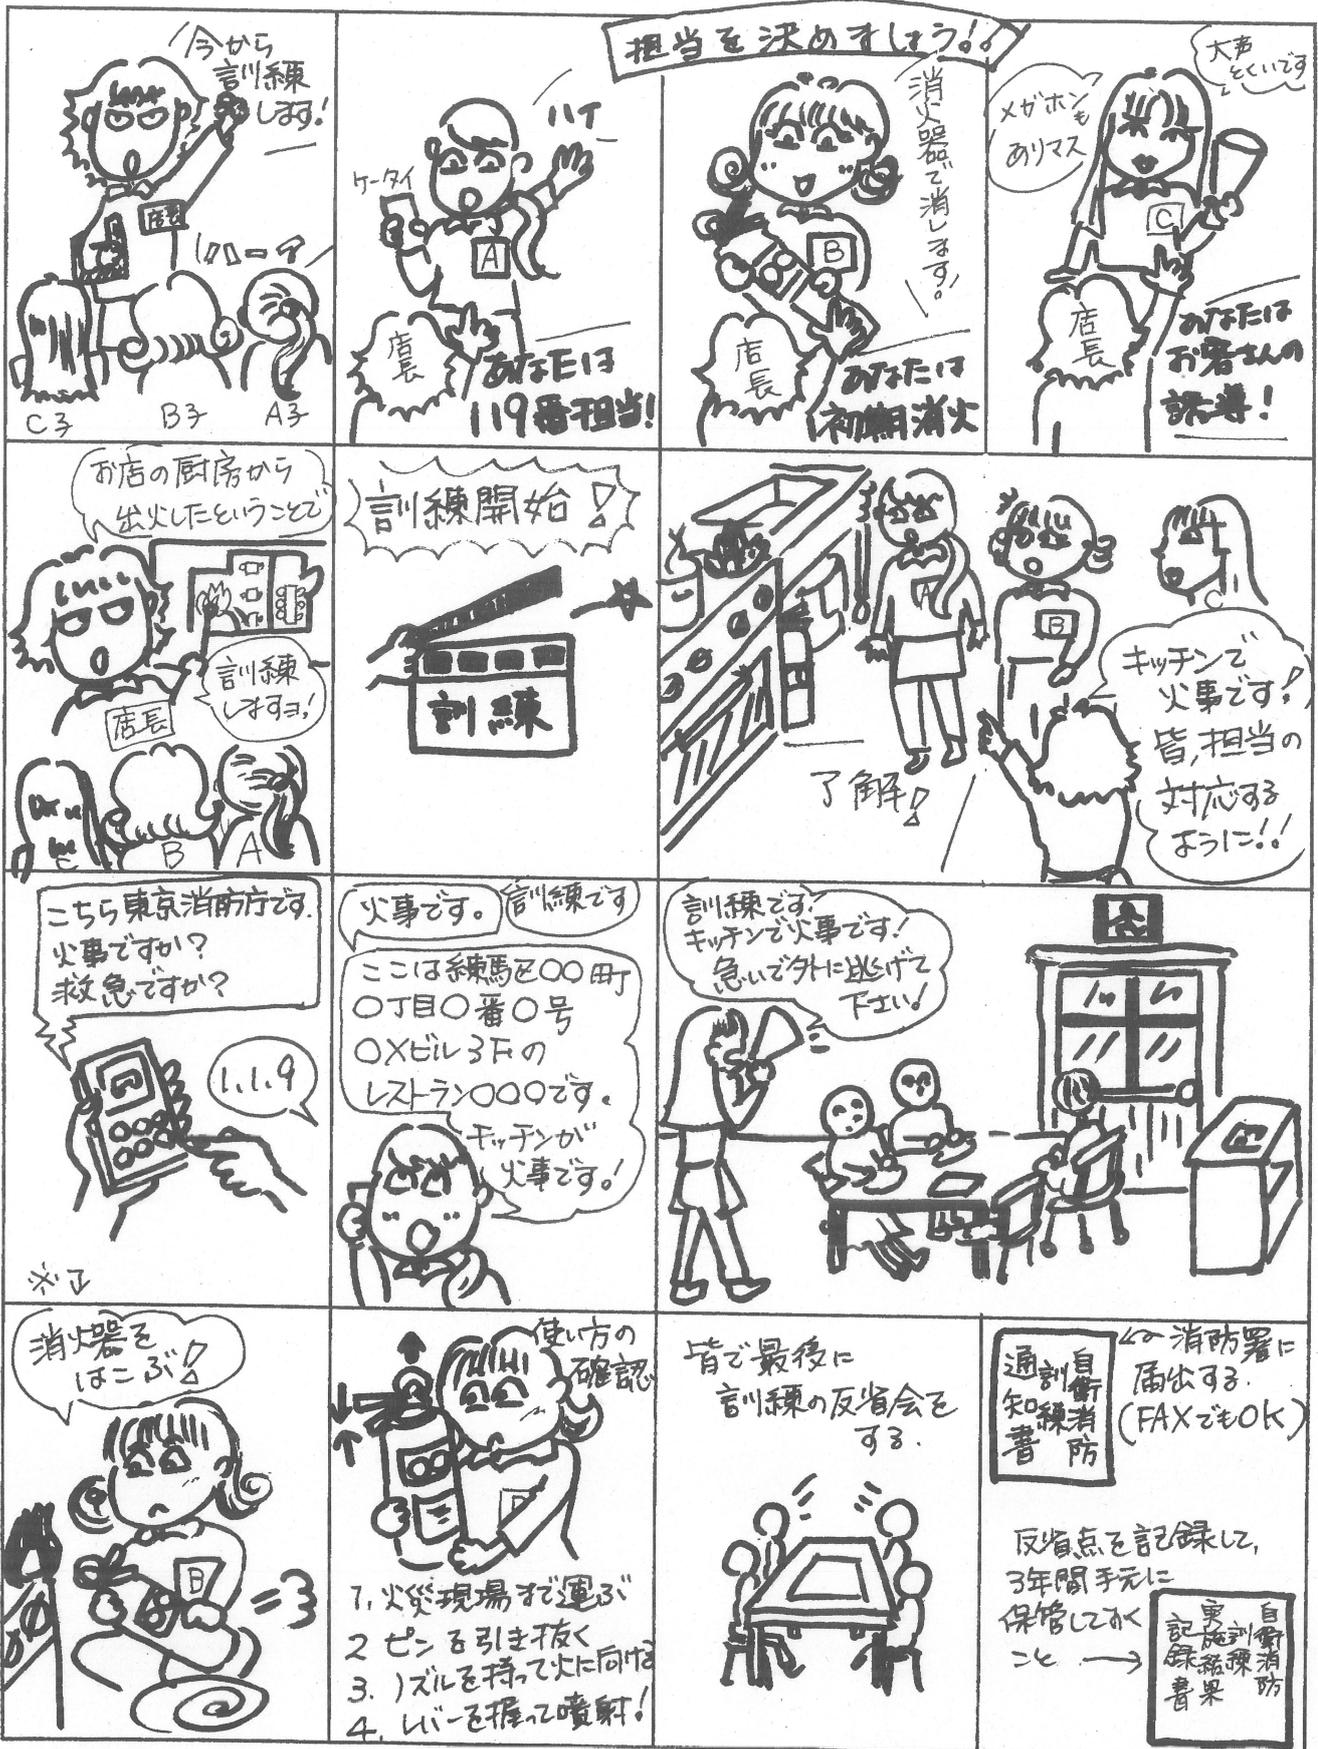 担当を決めましょう!!
今から
訓練
します!
店長
ハーイ
C子
B子
A子
ハイ
ケータイ
A
店長
あなたは
119番担当!
消火器で消します。
B
店長
あなたは
初期消火
大声
とくいです
メガホンも
ありマス
C
店長
あなたは
お客さんの
誘導!
お店の厨房から
出火したということで
訓練
しますョ!
店長
C
B
A
訓練開始!
訓練
A
B
C
キッチンで
火事です!
皆、担当の
対応する
ように!!
了解!
こちら東京消防庁です.
火事ですか?
救急ですか?
1.1.9
火事です。
訓練です
ここは練馬区〇〇町
〇丁目〇番〇号
〇Xビル3Fの
レストラン〇〇〇です。
キッチンが
火事です!
訓練です!
キッチンで火事です!
急いで外に逃げて
下さい!
消火器を
はこぶ!
B
使い方の
確認
1. 火災現場まで運ぶ
2 ピンを引き抜く
3. ノズルを持って火に向ける
4. レバーを握って噴射!
皆で最後に
訓練の反省会を
する.
自衛消防
訓練
通知書
消防署に
届出する.
(FAXでもOK)
反省点を記録して,
3年間手元に
保管しておく
こと
自衛消防
訓練
実施結果
記録書